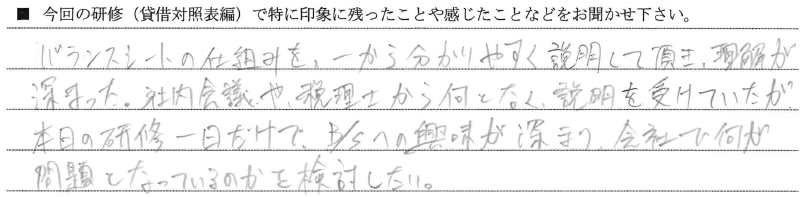 ■ 今回の研修（貸借対照表編）で特に印象に残ったことや感じたことなどをお聞かせ下さい。
バランスシートの仕組みを、一から分かりやすく説明して頂き、理解が
深まった。社内会議や、税理士から何となく、説明を受けていたが、
本日の研修一日だけで、B/Sへの興味が深まり、会社で何が
問題となっているのかを検討したい。